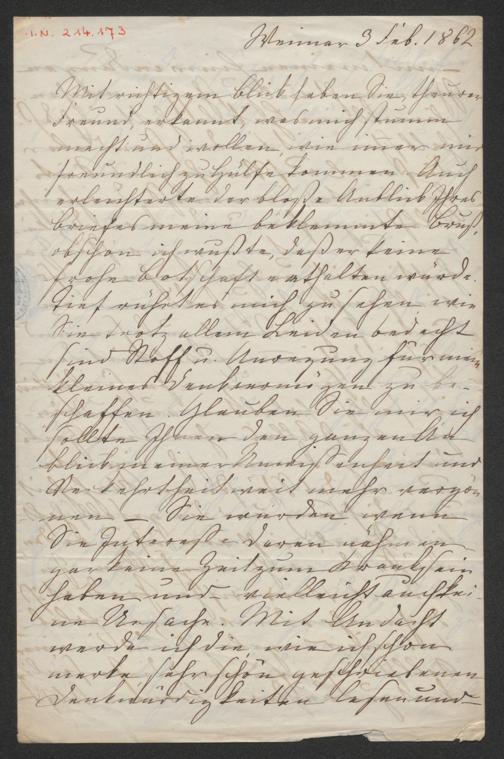 I.N. 214.173
Weimar 3 Feb. 1862
Mit richtigem Blick haben Sie, theurer
Freund, erkannt, was mich stumm
macht und wollen wie imer mir
freundlich zu Hülfe kommen. Auch
erleichterte der bloße Anblick Ihres
Briefes meine beklemmte Brust,
obschon ich wußte, daß er keine
frohe Botschaft enthalten würde.
Tief rührt es mich zu sehen wie
Sie trotz allem Leiden bedacht
sind Stoff u. Anregung für mein
kleines Denkvermögen zu be-
schaffen. Glauben Sie mir ich
sollte Ihnen den ganzen An
blick meiner Unwissenheit und
Verkehrtheit weit mehr vergön
nen – Sie würden wenn
Sie Interesse daran nähmen
gar keine Zeit zum Kranksein
haben und vielleicht auch kei-
ne Ursache. Mit Andacht
werde ich die, wie ich schon
merke sehr schön geschriebenen
Denkwürdigkeiten lesen und